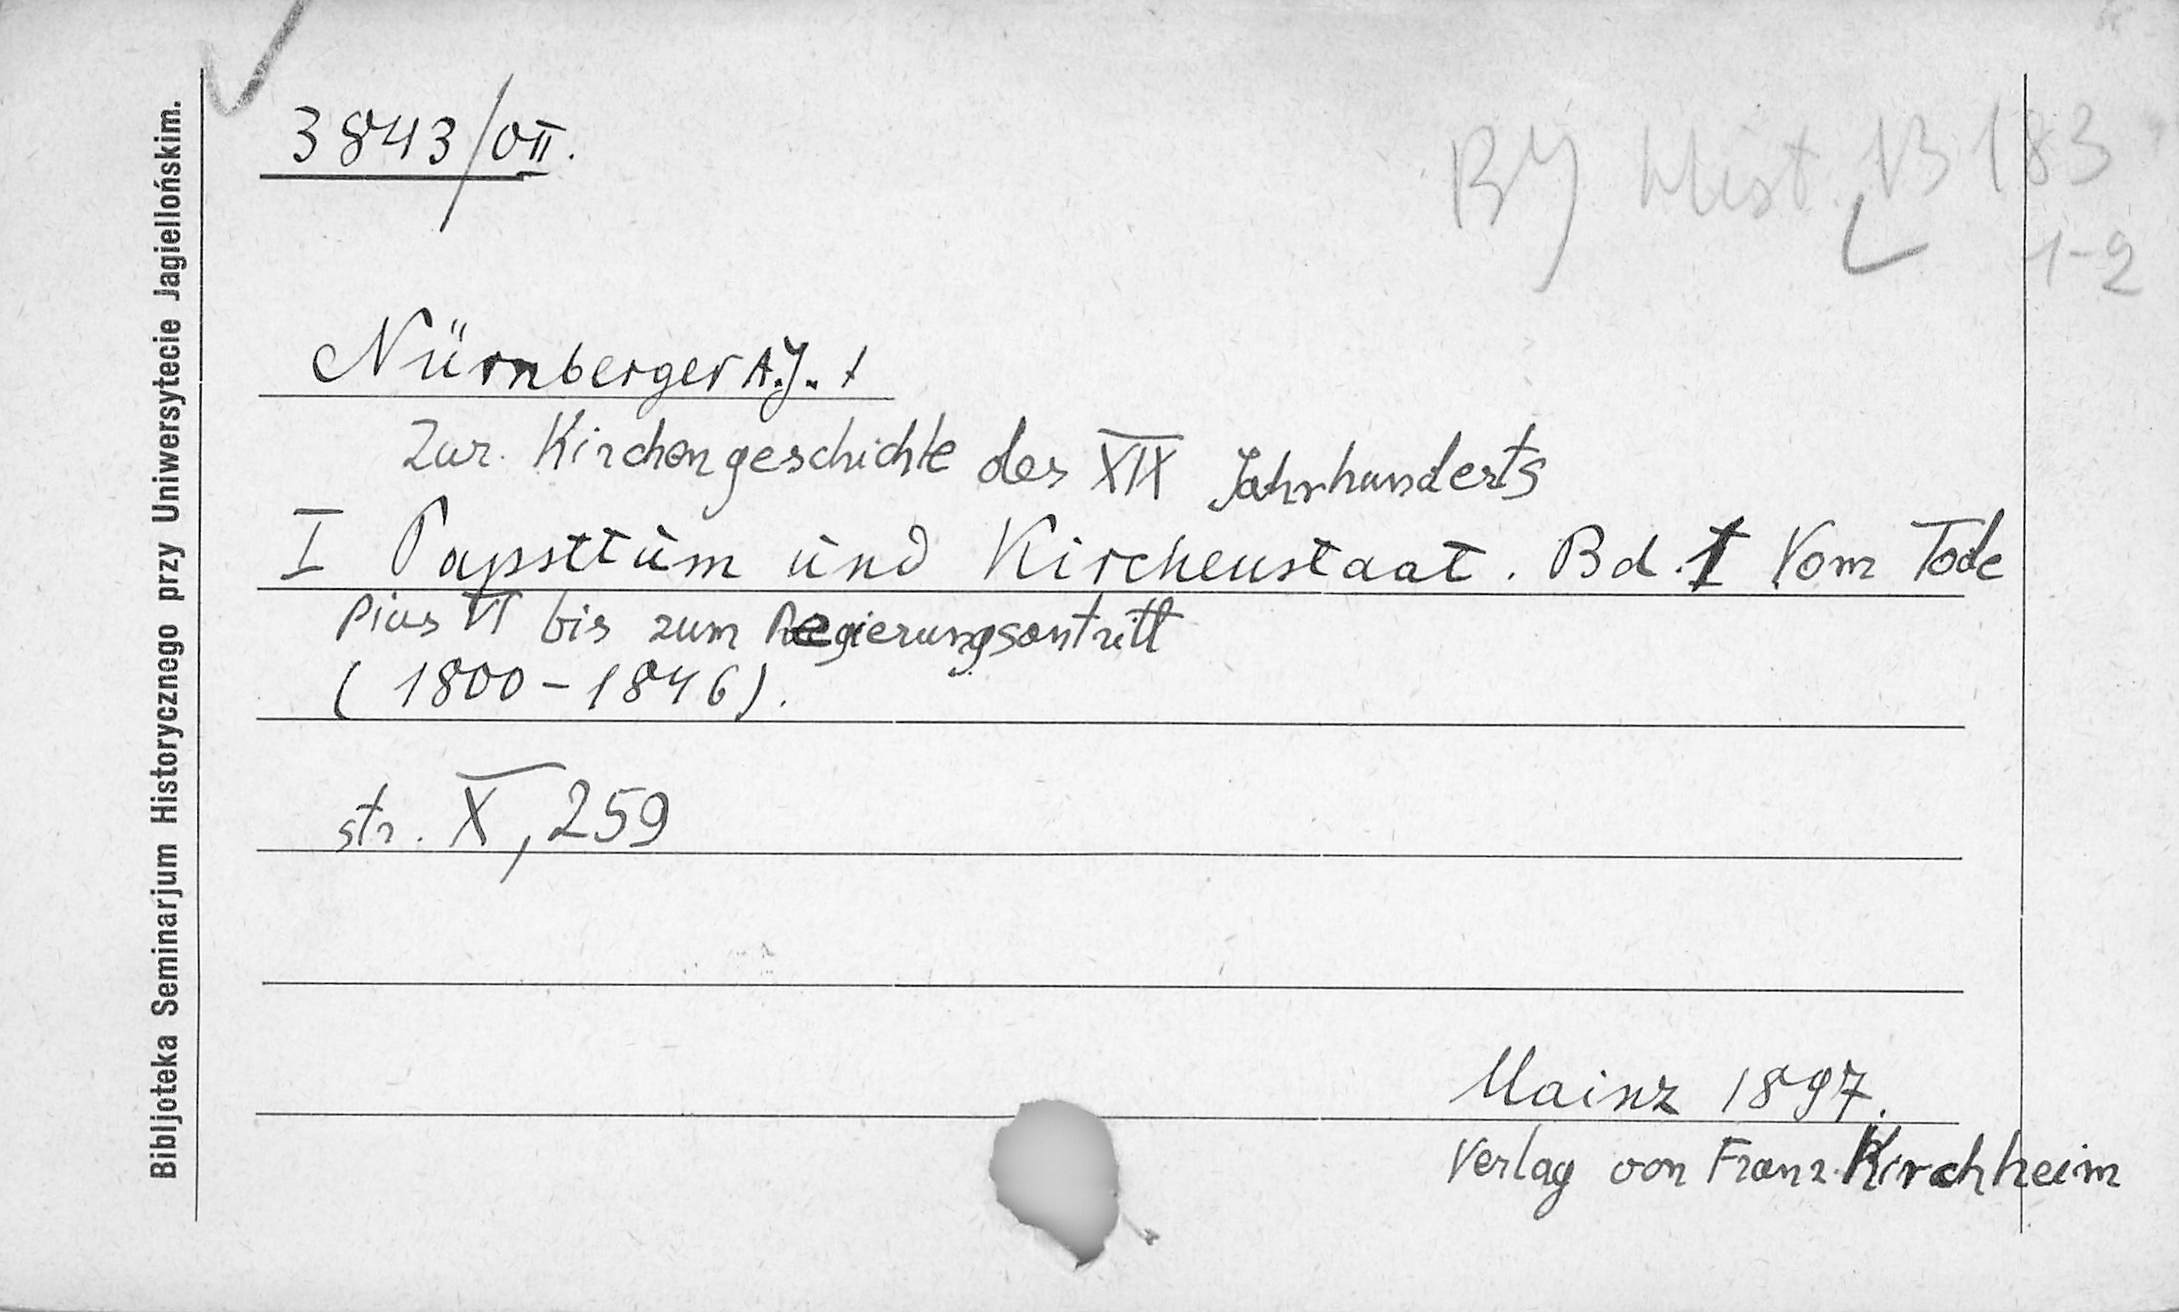 3843/OII.
BJ Hist. B 183
1-2
Nürnberger A.J. 1
Zur Kirchengeschichte des XIX Jahrhunderts
I Papsttum und Kirchenstaat. Bd. I Vom Tode
Pius VI bis zum Regierungsantritt
(1800-1846).
str. X, 259
Mainz 1897.
Verlag von Franz Kirchheim
Bibljoteka Seminarjum Historycznego przy Uniwersytecie Jagiellońskim.